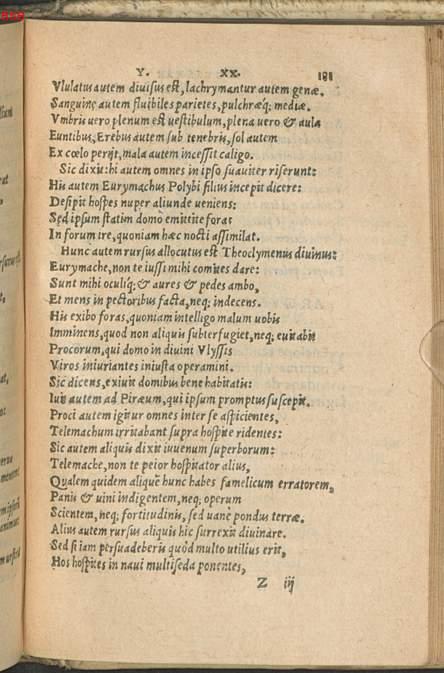 Y. XX. 181
Vlulatus autem diuisus est, lachrymantur autem genæ.
Sanguine autem fluibiles parietes, pulchræq; mediæ.
Vmbris uero plenum est uestibulum, plena uero & aula
Euntibus, Erebus autem sub tenebris, sol autem
Ex cœlo perijt, mala autem incessit caligo.
Sic dixit: hi autem omnes in ipso suauiter riserunt:
His autem Eurymachus Polybi filius incepit dicere:
Desipit hospes nuper aliunde ueniens:
Sed ipsum statim domō emittite foras
In forum ire, quoniam hæc nocti assimilat.
Hunc autem rursus allocutus est Theoclymenus diuinus:
Eurymache, non te iussi mihi comites dare:
Sunt mihi oculiq; & aures & pedes ambo,
Et mens in pectoribus facta, neq; indecens.
His exibo foras, quoniam intelligo malum uobis
Imminens, quod non aliquis subterfugiet, neq; euitabit
Procorum, qui domo in diuini Vlyssis
Viros iniuriantes iniusta operamini.
Sic dicens, exiuit domibus bene habitatis:
Iuit autem ad Piræum, qui ipsum promptus suscepit.
Proci autem igitur omnes inter se aspicientes,
Telemachum irritabant supra hospite ridentes:
Sic autem aliquis dixit iuuenum superborum:
Telemache, non te peior hospitator alius,
Qualem quidem aliquē hunc habes famelicum erratorem,
Panis & uini indigentem, neq; operum
Scientem, neq; fortitudinis, sed uanē pondus terræ.
Alius autem rursus aliquis hic surrexit diuinare.
Sed si iam persuadeberis quod multo utilius erit,
Hos hospites in naui multiseda ponentes,
Z iij